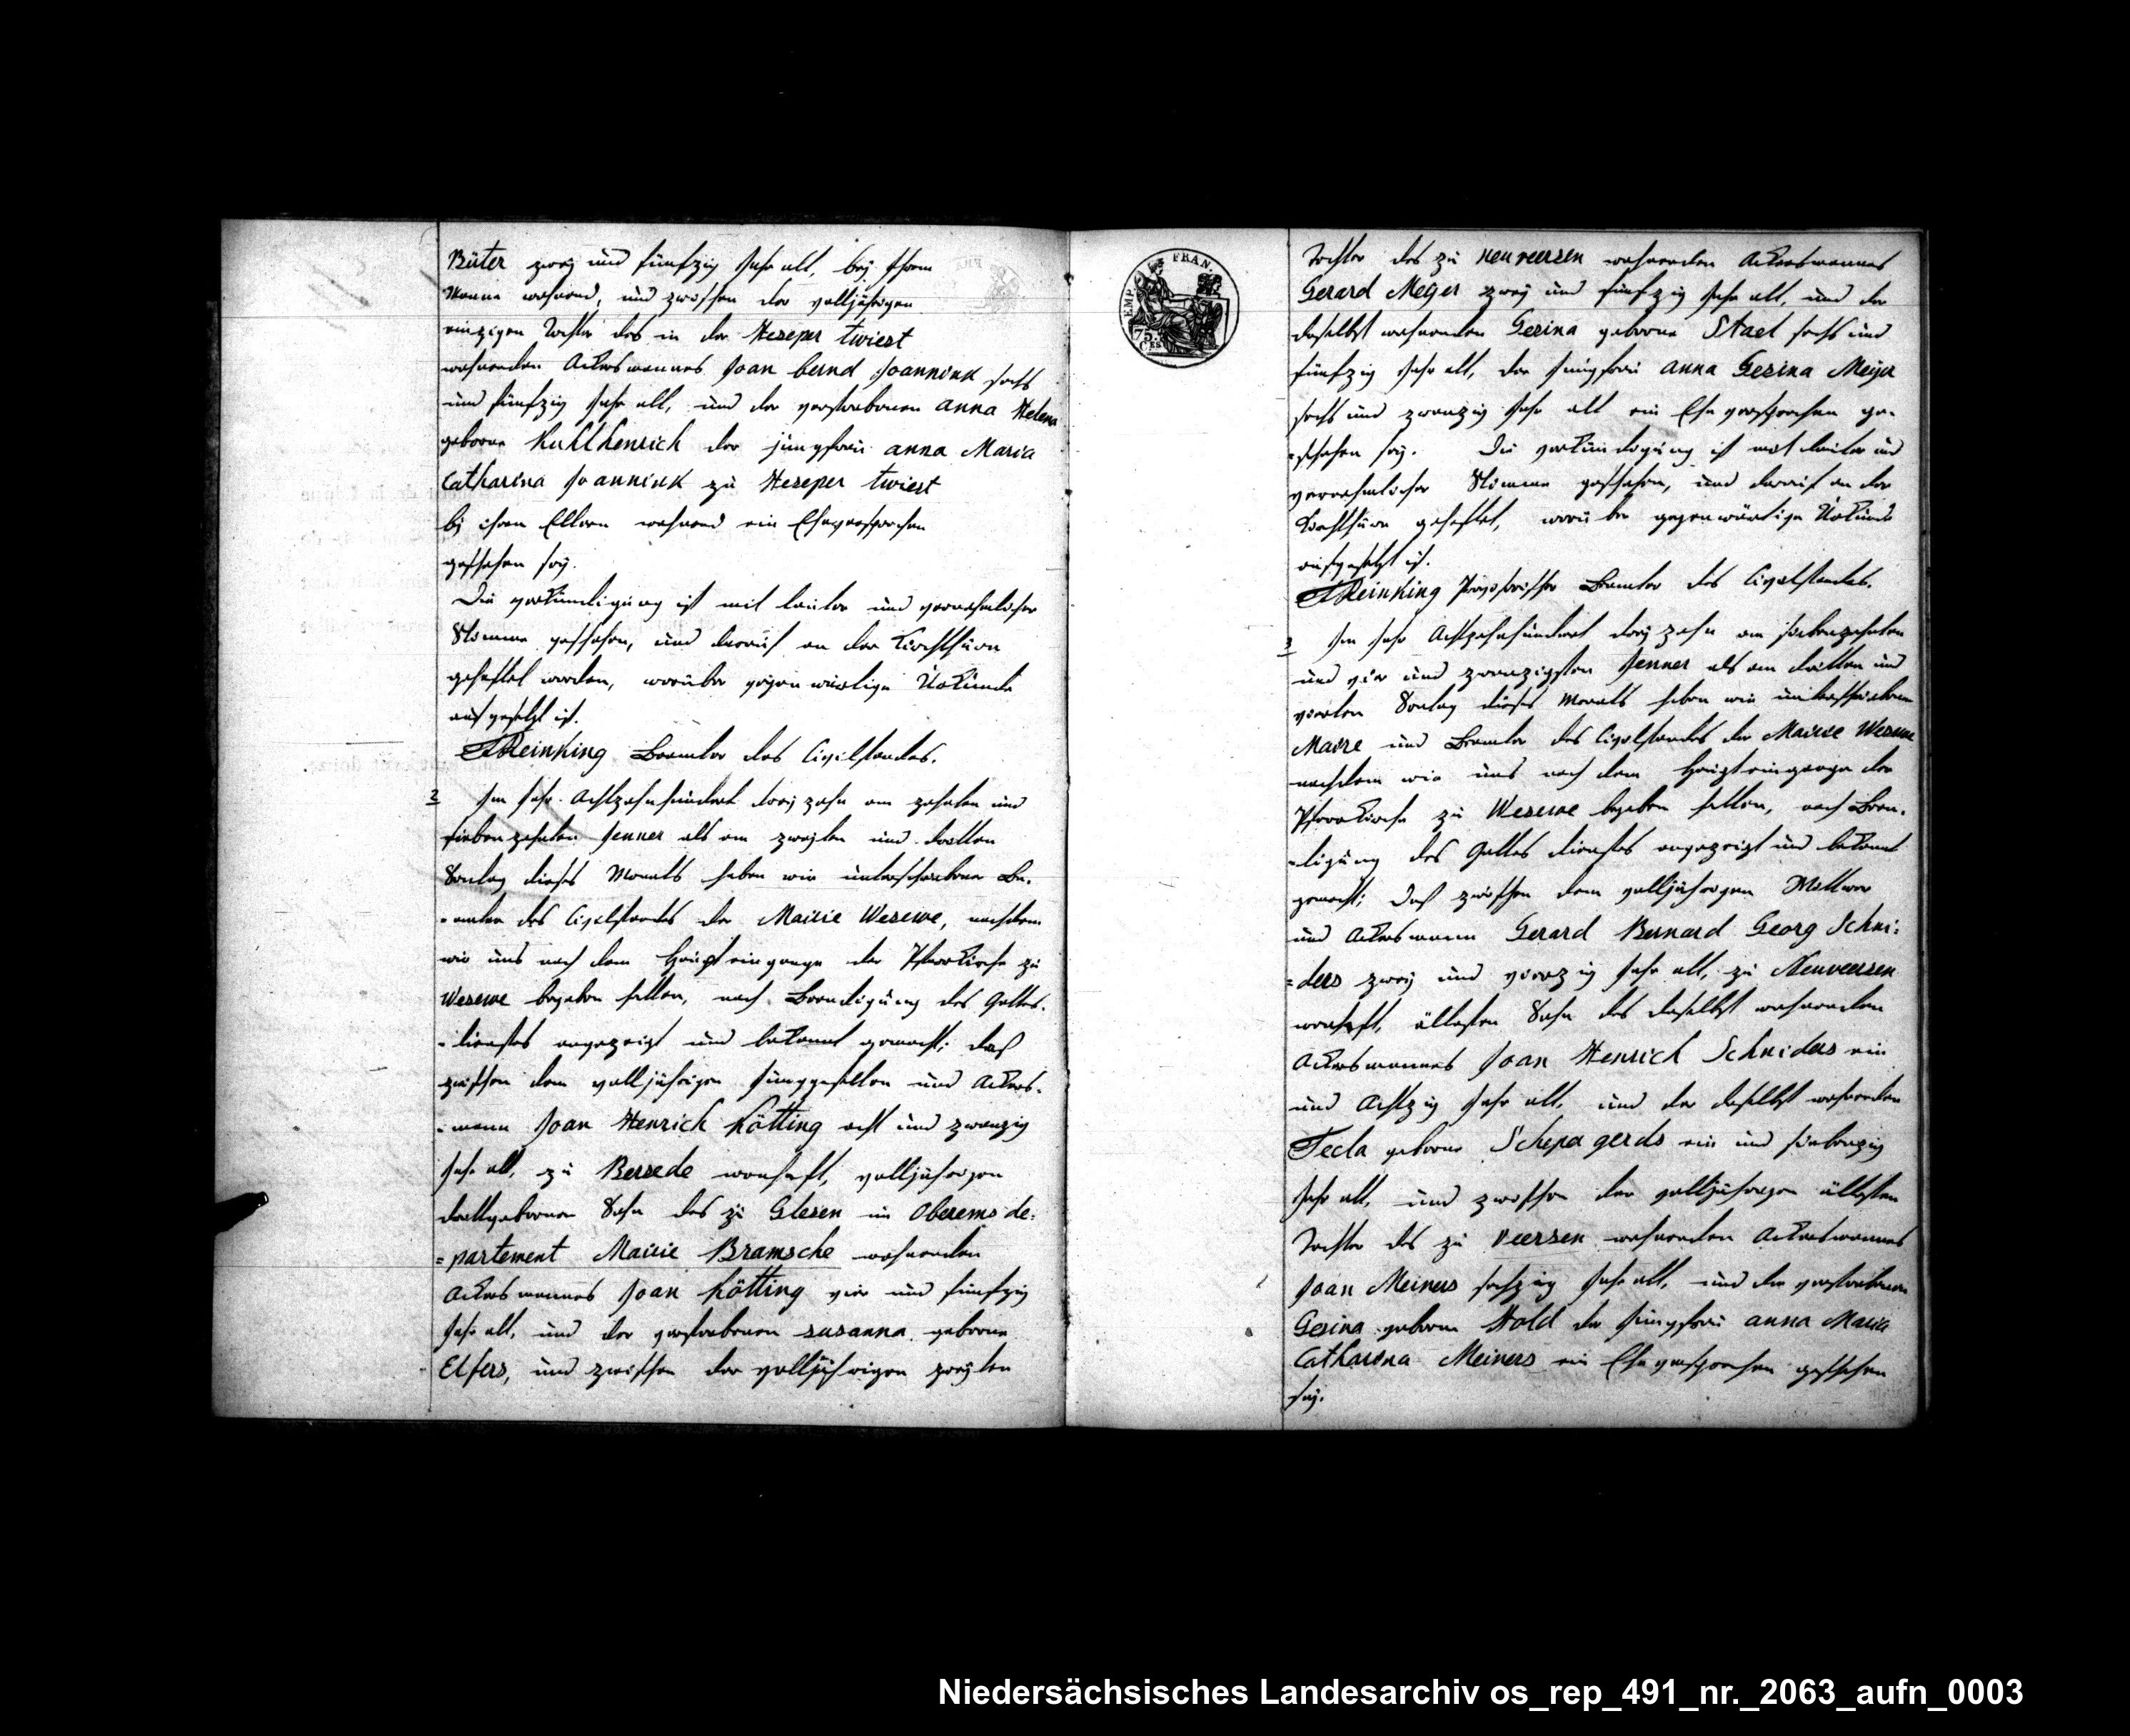 Büter zweÿ und fünfzig Jahr alt, beÿ ihrem
Manne wohnend, und zwischen der volljährigen
einzigen Tochter des in der Heseper twiest
wohnenden Ackersmannes Joan bernd Joannink sechs
und fünfzig Jahr alt, und der verstorbenen anna Helena
geborne Kuhlhenrich der jungfrau anna Maria
Catharina Joannink zu Heseper twiest
beÿ ihren Eltern wohnend ein Eheversprechen
geschehen seÿ.
Die verkündigung ist mit lauter und vernehmlicher
Stimme geschehen, und darauf an der Kirchthüre
geheftet worden, worüber gegenwärtige Urkunde
aufgesetzt ist.
Reinking Beamter des Civilstandes.
2 Im Jahr Achtzehnhundert dreÿzehn am zehnten und
siebenzehnten Jenner als am zweÿten und dritten
Sontag dieses Monats haben wir unterschriebener Be-
-amter des Civilstandes der Mairie Wesuwe, nachdem
wir uns nach dem Haupteingange der Pfarrkirche zu
Wesuwe begeben hatten, nach Beendigung des Gottes-
-dienstes angezeigt und bekannt gemacht; daß
zwischen dem volljährigen Junggesellen und Ackers-
-mann Joan Henrich Kötting acht und zwanzig
Jahr alt, zu Berssede wonhaft, volljährigen
drittgebornen Sohn des zu Glesen im Oberems de-
=partement Mairie Bramsche wohnenden
Ackersmannes Joan Kötting vier und fünfzig
Jahr alt, und der verstorbenen susanna geborne
Elfers, und zwischen der volljährigen zweÿten
EMP. FRAN.
75.
CES
Tochter des zu neuveersen wohnenden Ackersmannes
Gerard Meÿer zweÿ und fünfzig Jahr alt, und der
daselbst wohnenden Gesina geborne Stael sechs und
fünfzig Jahr alt, der Jungfrau anna Gesina Meÿer
sechs und zwanzig Jahr alt ein Eheversprechen ge-
=schehen seÿ. Die verkündigung ist mit lauter und
vernehmlicher Stimme geschehen, und darauf an der
Kirchthüre geheftet, worüber gegenwärtige Urkunde
aufgesetzt ist.
Reinking Provisorischer Beamter des Civilstandes.
3 Im Jahr Achtzehnhundert dreÿzehn am siebenzehnten
und vier und zwanzigsten Jenner als am dritten und
vierten Sontag dieses Monats haben wir unterschriebener
Maire und Beamter des Civilstandes der Mairie Wesuwe
nachdem wir uns nach dem Haupteingange der
Pfarrkirche zu Wesuwe begeben hatten, nach Been-
-digung des Gottesdienstes angezeigt und bekannt
gemacht; daß zwischen dem volljährigen Wittwer
und Ackersmann Gerard Bernard Georg Schni-
=ders zweÿ und vierzig Jahr alt, zu Neuveersen
wonhaft, ältesten Sohn des daselbst wohnenden
Ackersmannes Joan Henrich Schniders ein
und Achtzig Jahr alt, und der daselbst wohnenden
Tecla geborne Schepagerds ein und siebenzig
Jahr alt, und zwischen der volljährigen ältesten
Tochter des zu veersen wohnenden Ackersmannes
Joan Meiners sechzig Jahr alt, und der verstorbenen
Gesina geborne Hold der Jungfrau anna Maria
Catharina Meiners ein Eheversprechen geschehen
seÿ.
Niedersächsisches Landesarchiv os_rep_491_nr._2063_aufn_0003